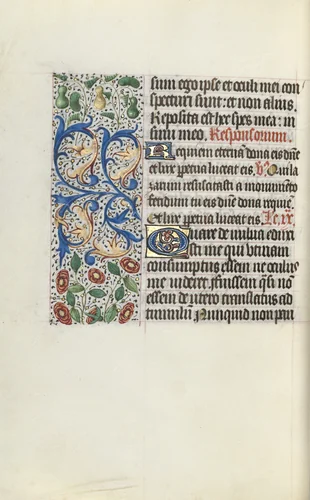 sum ego ipse et oculi mei con
specturi sunt: et non alius.
Reposita est hec spes mea: in
sinu meo. Responsorium.
Requiem eternā dona eis dñe
et lux perpetua luceat eis. V. Qui la
zarum resuscitasti a monumēto
fetidum tu eis dñe dona requiē
Et lux perpetua luceat eis. Lc. ix.
Quare de vulva eduxi
sti me qui utinam
consumptus essem ne oculus
me videret. fuissem q̄si nō
essem de utero translatus ad
tumulū. Nunquid non pau